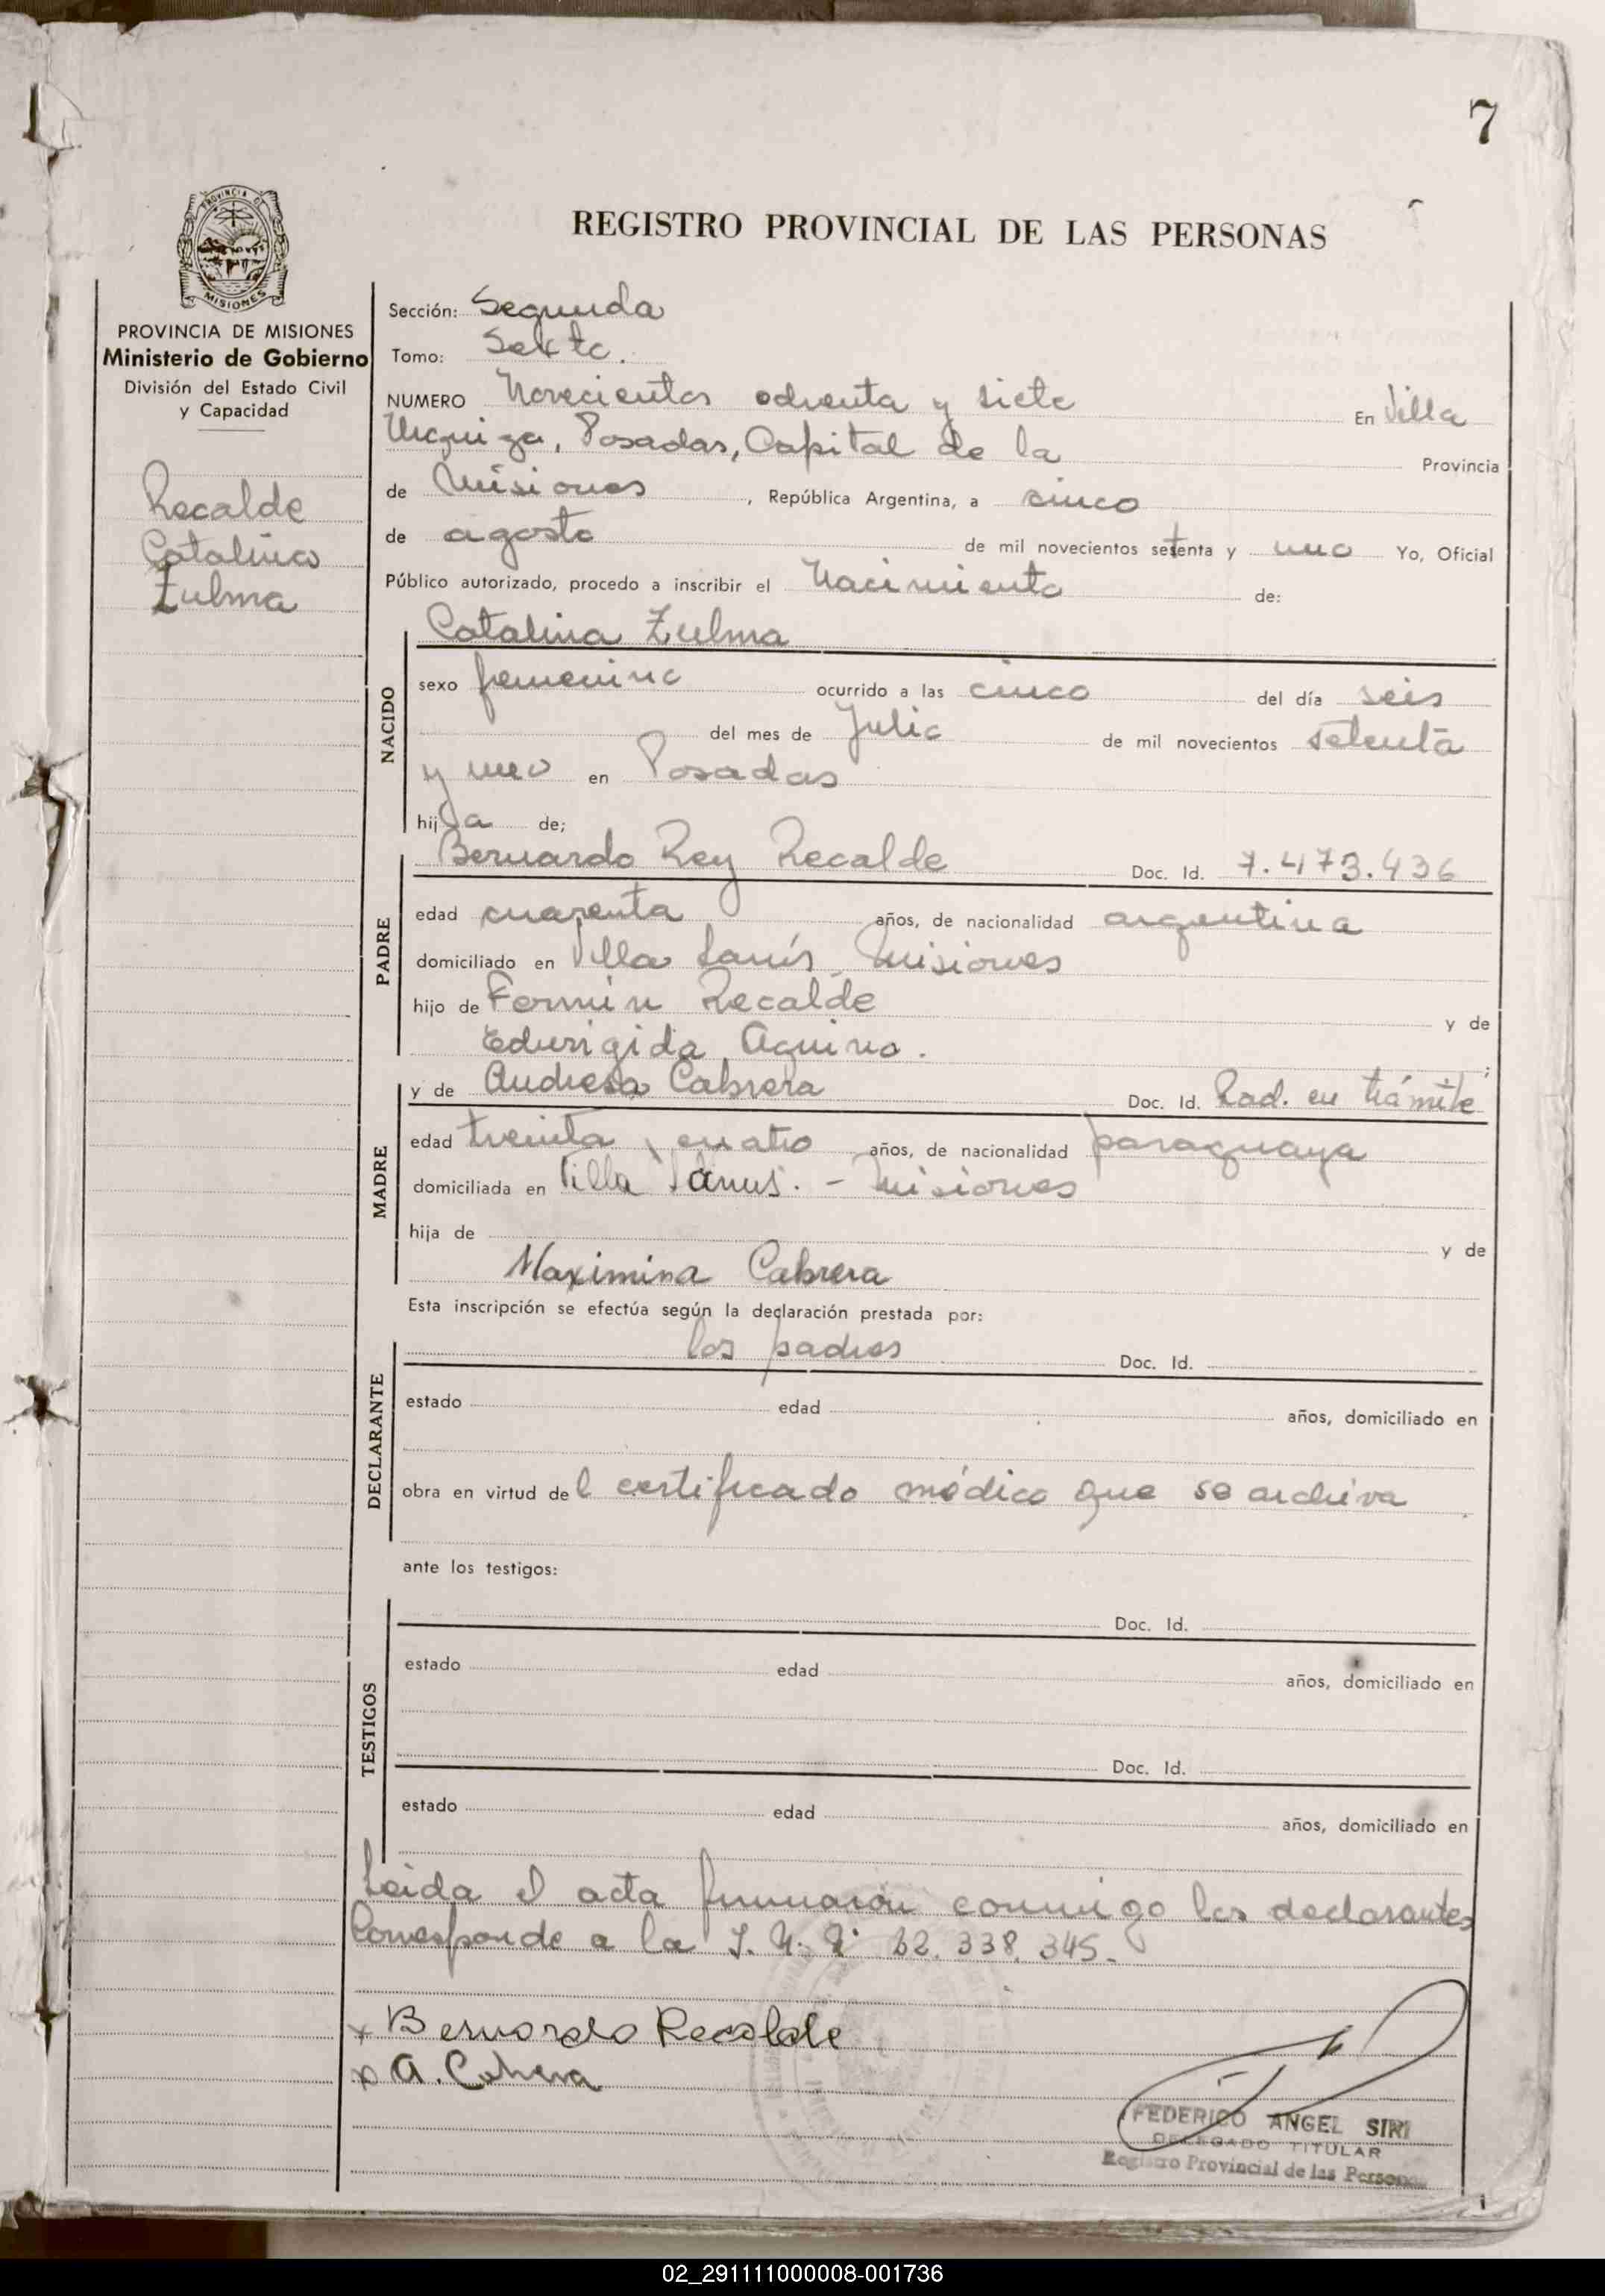 7
PROVINCIA DE MISIONES
REGISTRO PROVINCIAL DE LAS PERSONAS
PROVINCIA DE MISIONES
Ministerio de Gobierno
División del Estado Civil
y Capacidad
Recalde
Catalina
Zulma
Sección: Segunda
Tomo: Sexto.
NUMERO Novecientos ochenta y siete En Villa
Urquiza, Posadas, Capital de la Provincia
de Misiones, República Argentina, a cinco
de agosto de mil novecientos setenta y uno Yo, Oficial
Público autorizado, procedo a inscribir el Nacimiento de:
NACIDO
Catalina Zulma
sexo femenino ocurrido a las cinco del día seis
del mes de Julio de mil novecientos setenta
y uno en Posadas
hija de;
PADRE
Bernardo Rey Recalde Doc. Id. 7.473.436
edad cuarenta años, de nacionalidad argentina
domiciliado en Villa Lanús, Misiones
hijo de Fermin Recalde y de
Edurigida Aquino. ;
MADRE
y de Andresa Cabrera Doc. Id. Rad. en trámite
edad treinta y cuatro años, de nacionalidad paraguaya
domiciliada en Villa Lanus. - Misiones
hija de y de
Maximina Cabrera
Esta inscripción se efectúa según la declaración prestada por:
DECLARANTE
los padres Doc. Id.
estado edad años, domiciliado en
obra en virtud del certificado médico que se archiva
ante los testigos:
TESTIGOS
Doc. Id.
estado edad años, domiciliado en
Doc. Id.
estado edad años, domiciliado en
Leida el acta firmaron conmigo los declarantes
Corresponde a la 22.338.345.-
x Bernardo Recalde
x A. Cabrera
FEDERICO ANGEL SIRI
DELEGADO TITULAR
Registro Provincial de las Personas
02_291111000008-001736